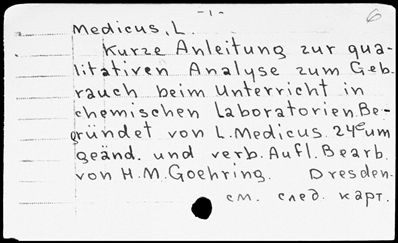 -1-
6
Medicus, L.
Kurze Anleitung zur qua-
litativen Analyse zum Geb-
rauch beim Unterricht in
chemischen Laboratorien. Be-
gründet von L. Medicus. 24e um
geänd. und verb. Aufl. Bearb.
von H. M. Goehring. Dresden-
см. след. карт.